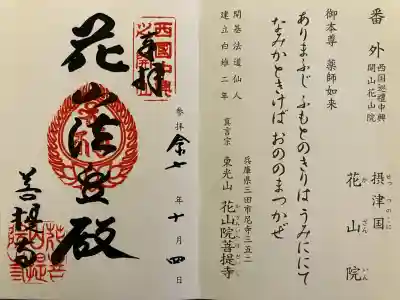 番外
西国巡禮中興
開山花山院
摂津国
せっつのくに
花山院
かざんいん
御本尊 薬師如来
ありまふじ ふもとのきりは うみににて
なみかときけば おののまつかぜ
開基 法道仙人
建立 白雉二年
兵庫県三田市尼寺三五二
真言宗 東光山 花山院菩提寺
奉拝
参拝 令七年十月四日
花山法皇殿
菩提寺